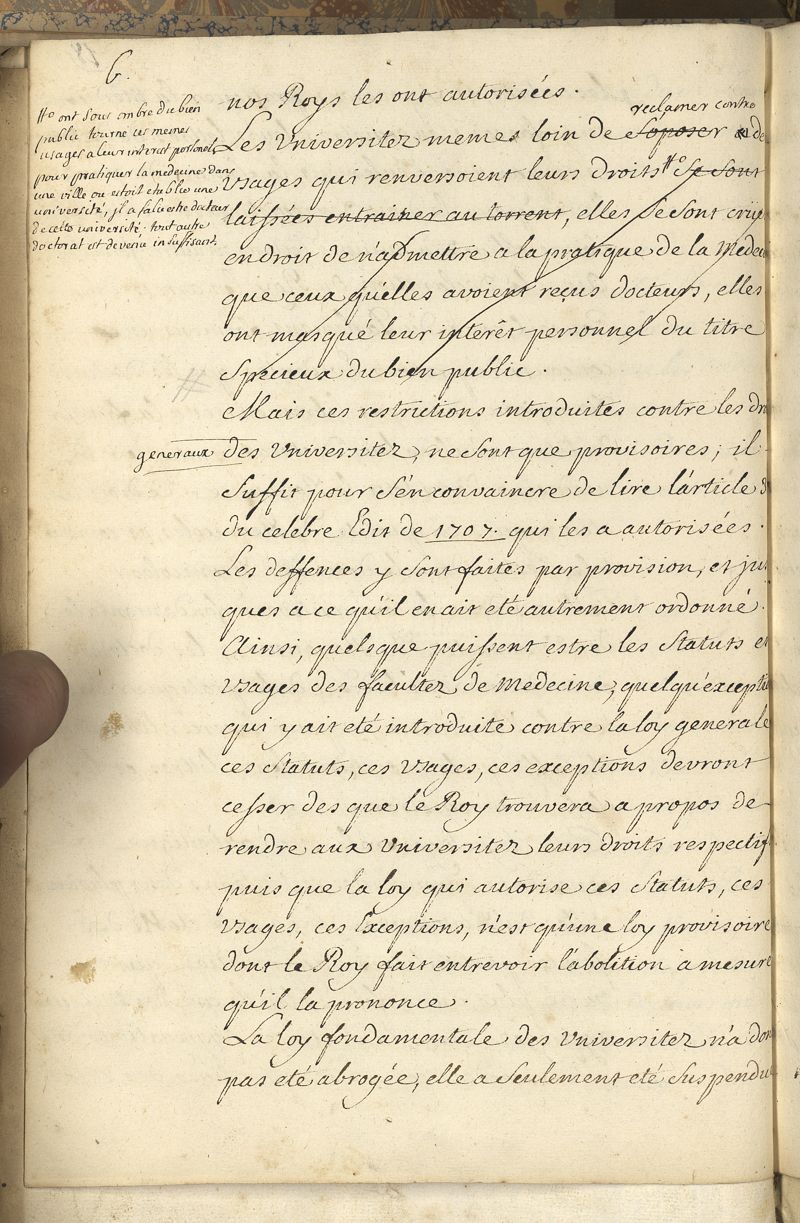 6.
nos Roys les ont autorisées.
reclamer contre
Les Universitez memes loin de s'oposer a de
Usages qui renversoient leurs droits # se sont
laissées entrainer au torrent, elles se sont crües
en droit de n'admettre a la pratique de la Medeci
que ceux qu'elles avoient reçus docteurs, elles
ont masqué leur interêt personnel du titre
specieux du bien public.
# ont sous ombre du bien
public tourné ces memes
usages a leur interest personel.
pour pratiquer la medecine dans
une ville ou estoit etablie une
université, il a falu estre docteur
de cette université. tout autre
doctorat est devenu insuffisant.
Mais ces restrictions introduites contre les dro
generaux
des Universitez, ne sont que provisoires, il
suffit pour s'en convaincre de lire l'article
du celebre Edit de 1707. qui les a autorisées.
Les deffences y sont faites par provision, et jus
ques a ce qu'il en ait eté autrement ordonné.
Ainsi, quelsque puissent estre les Statuts et
Usages des facultez de Medecine, quelqu'exceptio
qui y ait eté introduite contre la loy generale
ces Statuts, ces Usages, ces exceptions devront
cesser des que le Roy trouvera a propos de
rendre aux Universitez leurs droits respectif
puis que la loy qui autorise ces Statuts, ces
Usages, ces Exceptions, n'est qu'une loy provisoire
dont le Roy fait entrevoir l'abolition a mesure
qu'il la prononce.
La loy fondamentale des Universitez n'a don
pas eté abrogée, elle a seulement eté suspendue